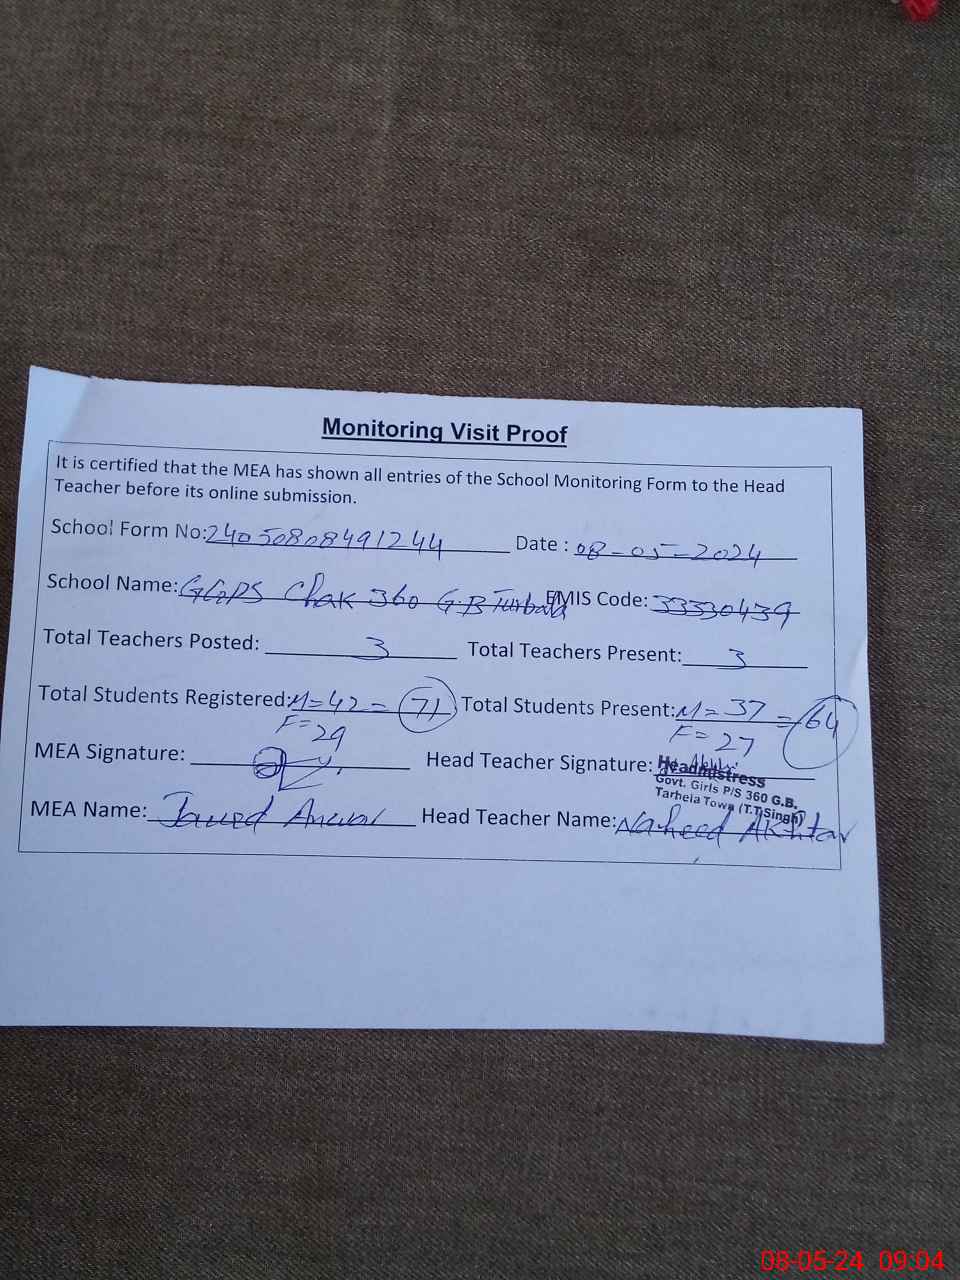 Monitoring Visit Proof
It is certified that the MEA has shown all entries of the School Monitoring Form to the Head
Teacher before its online submission.
School Form No: 24050808491244 Date : 08-05-2024
School Name: GGPS Chak 360 G.B EMIS Code: 33330439
Total Teachers Posted: 3 Total Teachers Present: 3
Total Students Registered: M=42 = 71 Total Students Present: M=37 = 64
F=29 F=27
MEA Signature: Head Teacher Signature:
Headmistress
Govt. Girls P/S 360 G.B.
Tarhela Town (T.T.Singh)
MEA Name: Javed Anwar Head Teacher Name: Naheed Akhtar
08-05-24 09:04